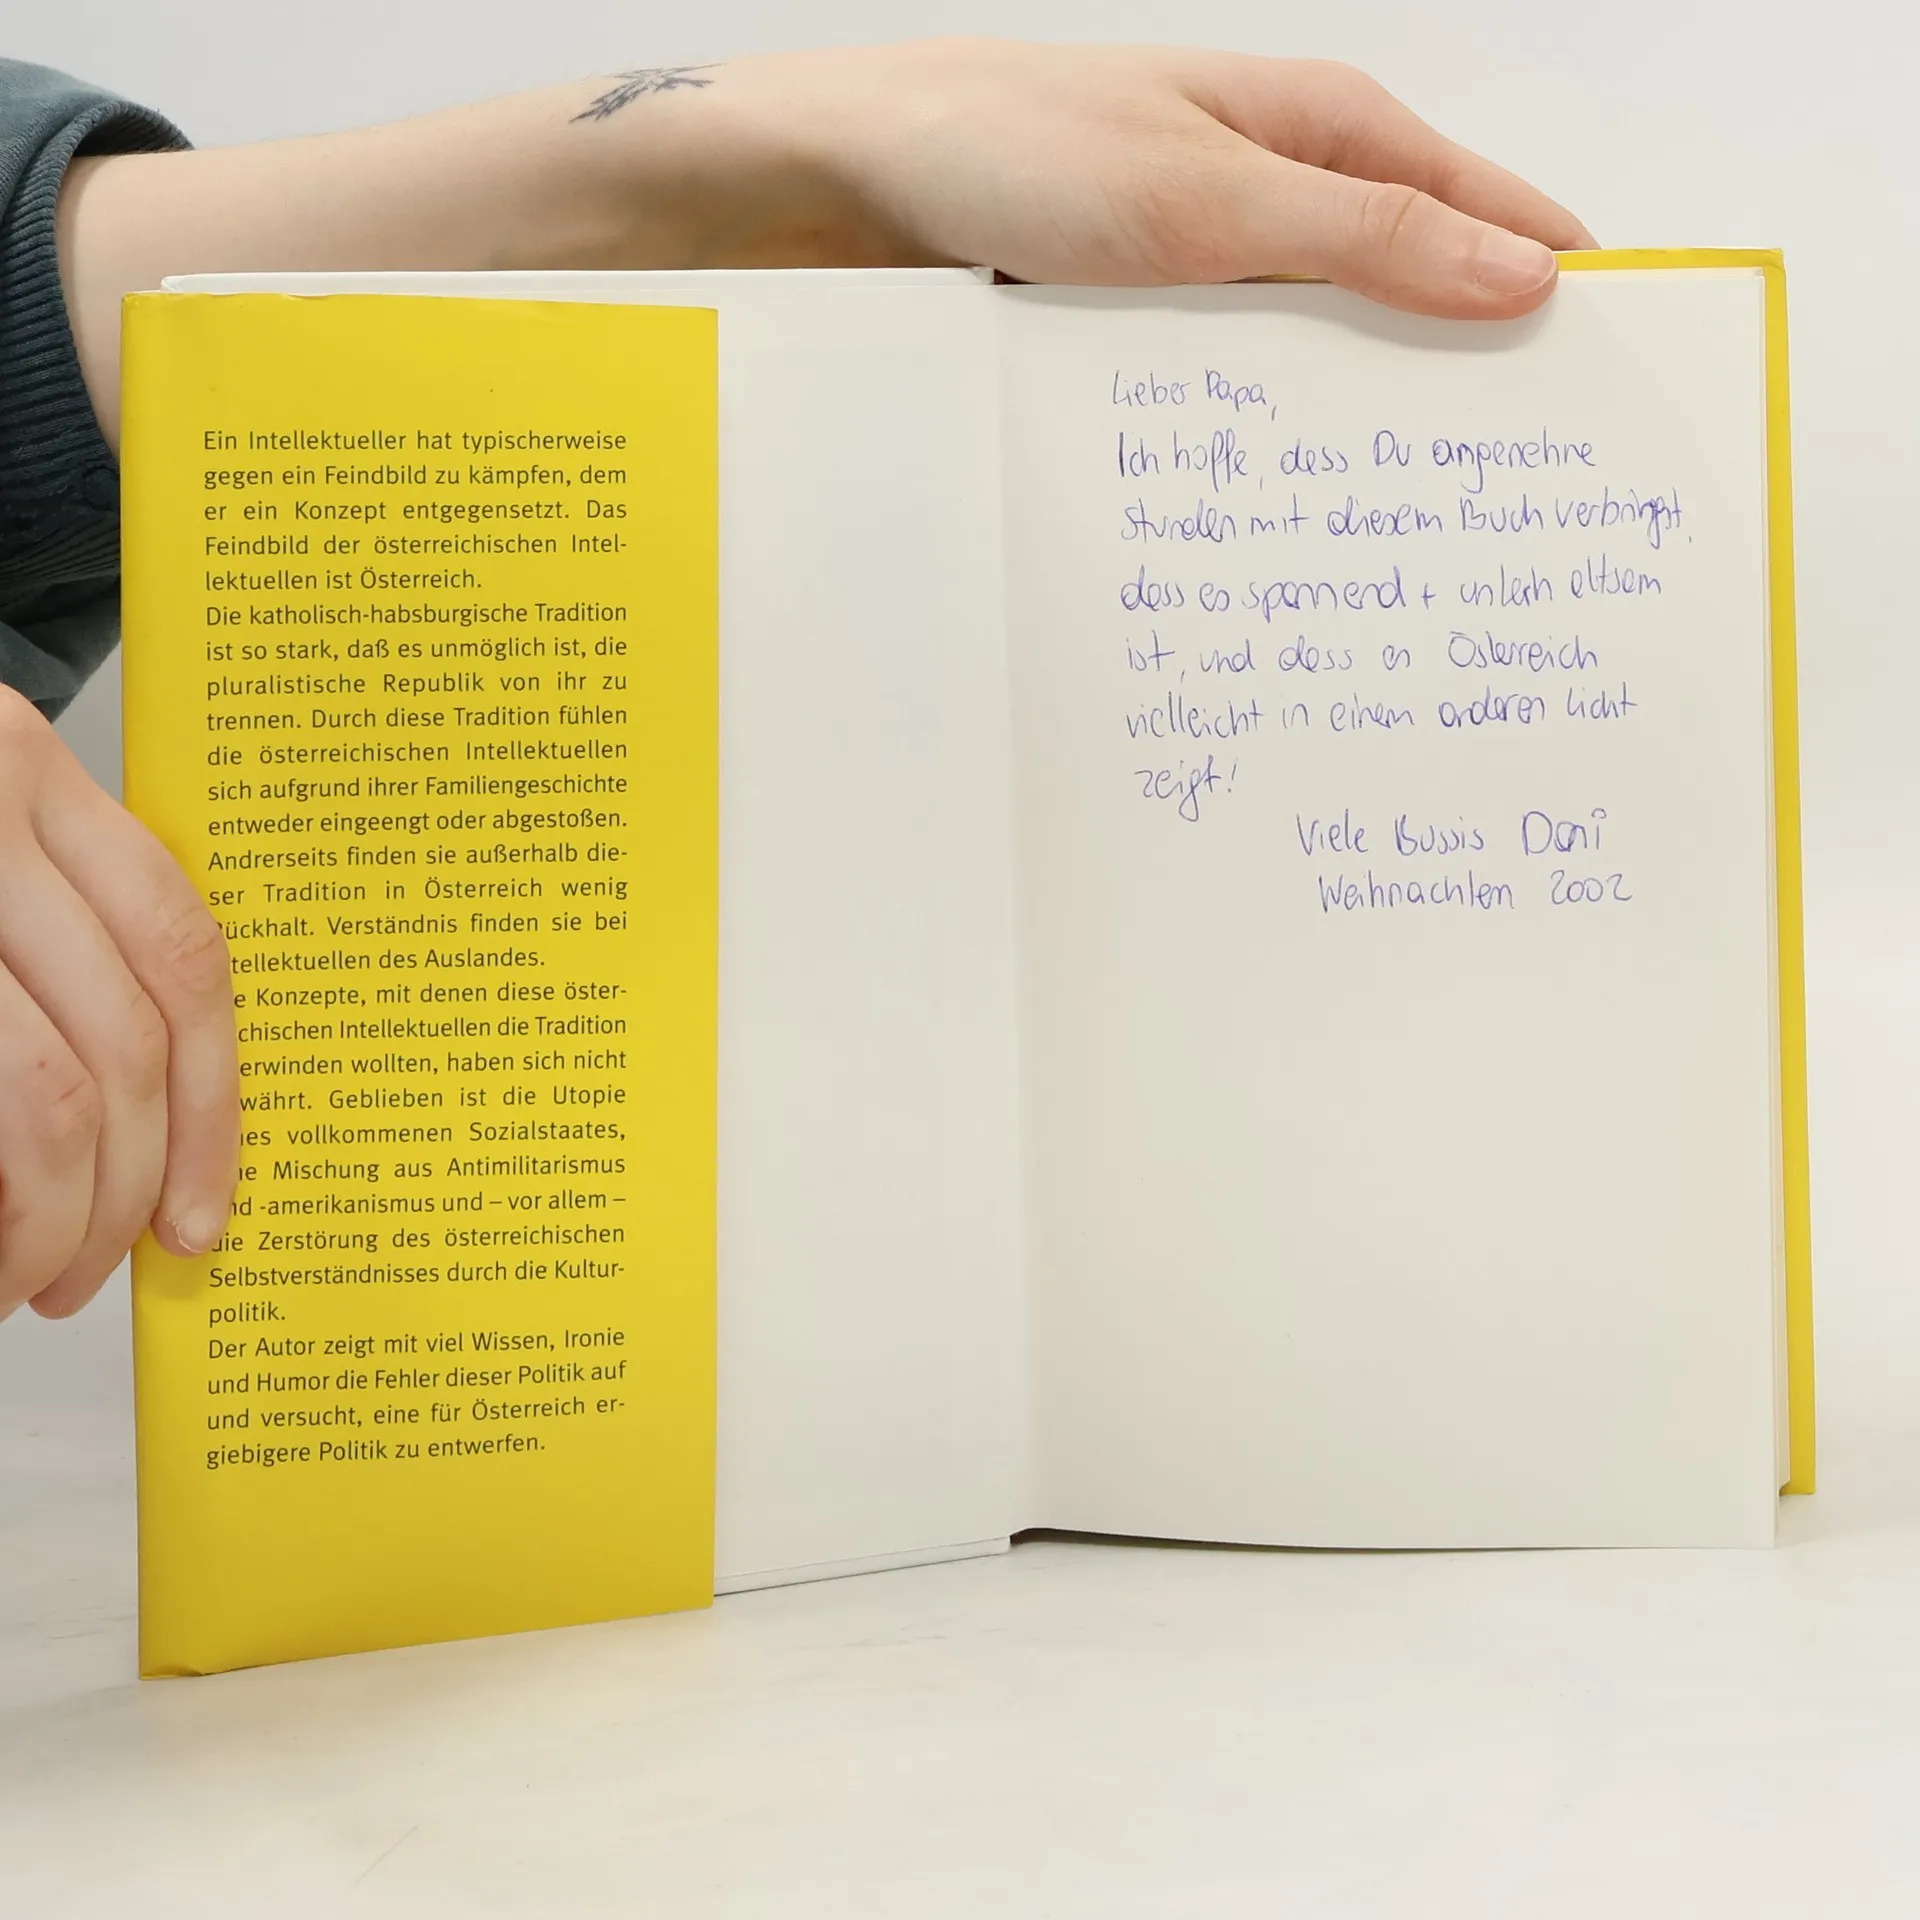 Ein Intellektueller hat typischerweise
gegen ein Feindbild zu kämpfen, dem
er ein Konzept entgegensetzt. Das
Feindbild der österreichischen Intel-
lektuellen ist Österreich.
Die katholisch-habsburgische Tradition
ist so stark, daß es unmöglich ist, die
pluralistische Republik von ihr zu
trennen. Durch diese Tradition fühlen
die österreichischen Intellektuellen
sich aufgrund ihrer Familiengeschichte
entweder eingeengt oder abgestoßen.
Andrerseits finden sie außerhalb die-
ser Tradition in Österreich wenig
ückhalt. Verständnis finden sie bei
tellektuellen des Auslandes.
e Konzepte, mit denen diese öster-
chischen Intellektuellen die Tradition
erwinden wollten, haben sich nicht
währt. Geblieben ist die Utopie
es vollkommenen Sozialstaates,
e Mischung aus Antimilitarismus
nd -amerikanismus und – vor allem –
die Zerstörung des österreichischen
Selbstverständnisses durch die Kultur-
politik.
Der Autor zeigt mit viel Wissen, Ironie
und Humor die Fehler dieser Politik auf
und versucht, eine für Österreich er-
giebigere Politik zu entwerfen.
Lieber Papa,
Ich hoffe, dass Du angenehme
Stunden mit diesem Buch verbringst,
dass es spannend + unterhaltsam
ist, und dass es Österreich
vielleicht in einem anderen Licht
zeigt!
Viele Bussis Dani
Weihnachten 2002